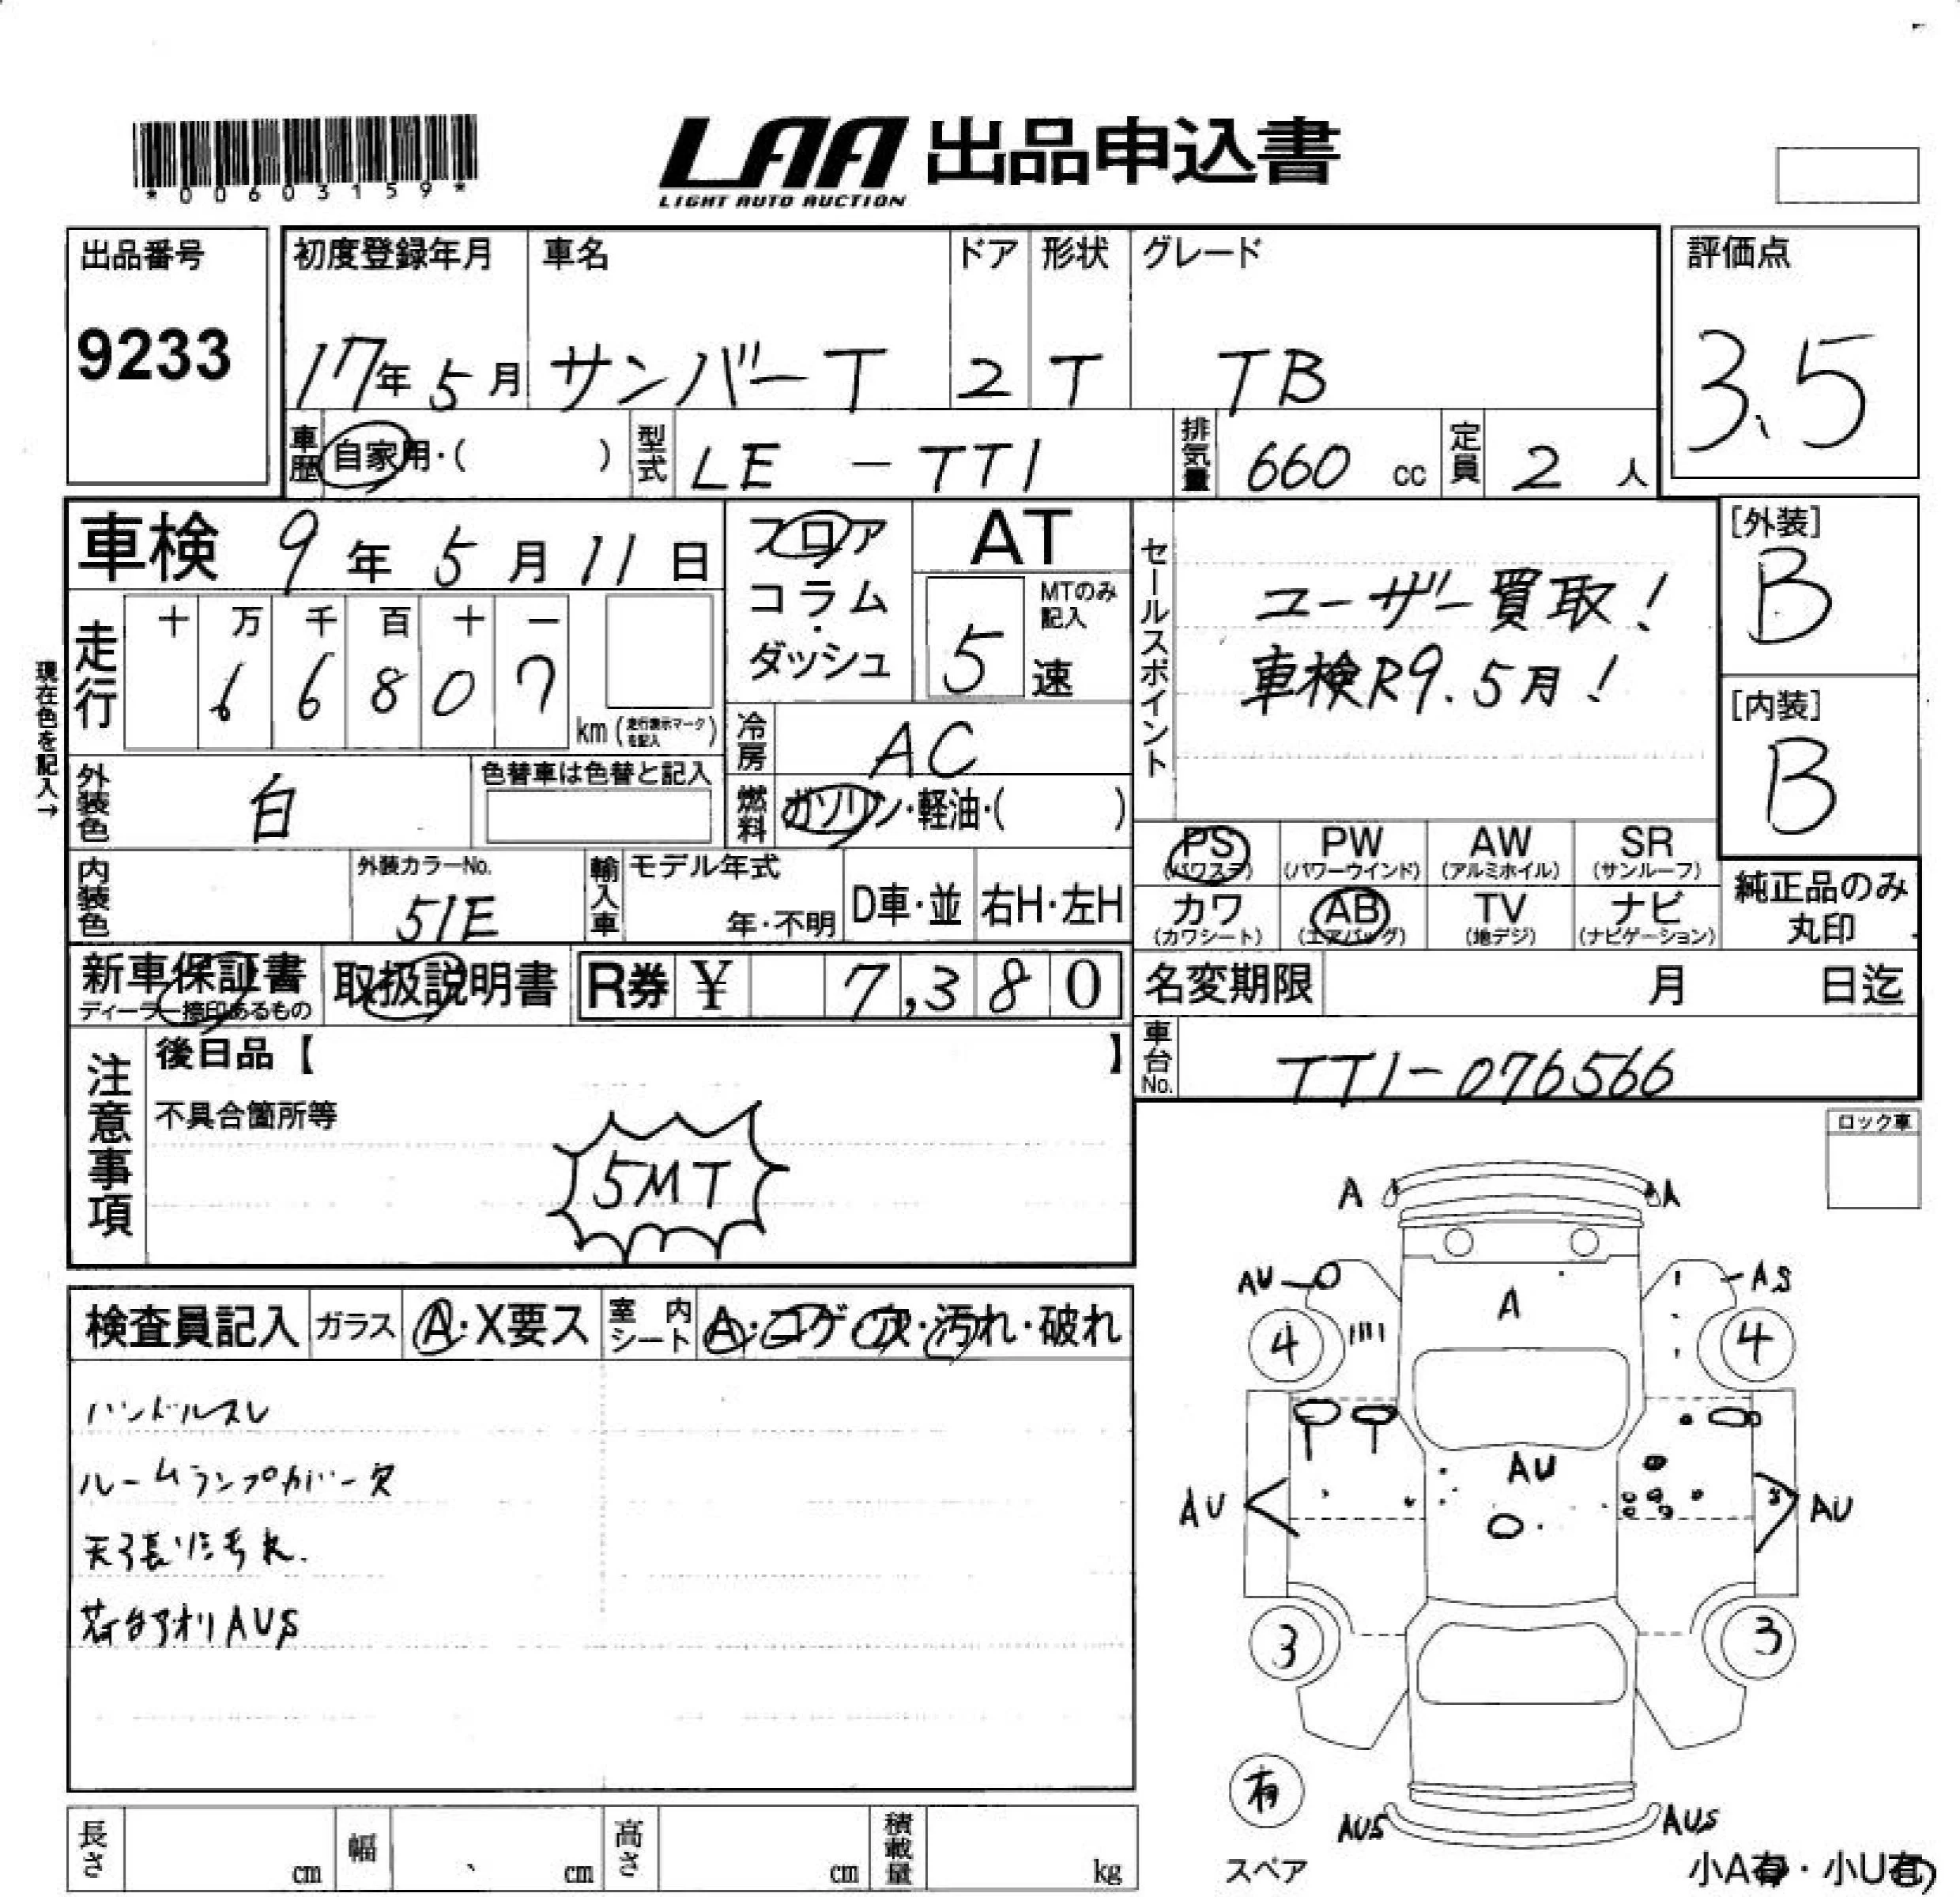 *00603159*
LAA 出品申込書
LIGHT AUTO AUCTION
出品番号
9233
初度登録年月 車名 ドア 形状 グレード
17年5月 サンバーT 2 T TB
評価点
3.5
車歴 自家用・( ) 型式 LE-TT1 排気量 660 cc 定員 2人
車検 9年5月11日
フロア・コラム・ダッシュ
AT
MTのみ記入
5速
セールスポイント
ユーザー買取!
車検R9.5月!
[外装]
B
[内装]
B
現在色を記入→
走行 十 万 千 百 十 一
66807 km (走行表示マークを記入)
冷房 AC
外装色 白 色替車は色替と記入
燃料 ガソリン・軽油・( )
内装色 外装カラーNo. 51E
輸入車 モデル年式 年・不明 D車・並 右H・左H
PS (パワステ) PW (パワーウインド) AW (アルミホイル) SR (サンルーフ)
カワ (カワシート) AB (エアバッグ) TV (地デジ) ナビ (ナビゲーション)
純正品のみ丸印
新車保証書 取扱説明書 R券 ¥ 7,380
ディーラー捺印あるもの
名変期限 月 日迄
車台No. TT1-076566
注意事項
後日品【 】
不具合箇所等
5MT
ロック車
検査員記入 ガラス A・X要ス 室内シート A・コゲ・穴・汚れ・破れ
ハンドルスレ
ルームランプカバー欠
天張り汚れ.
荷台アオリAUS
A A
AU A AS
4 4
AU AU AU
3 3
有
AUS AUS
スペア
小A有・小U有
長さ cm 幅 cm 高さ cm 積載量 kg